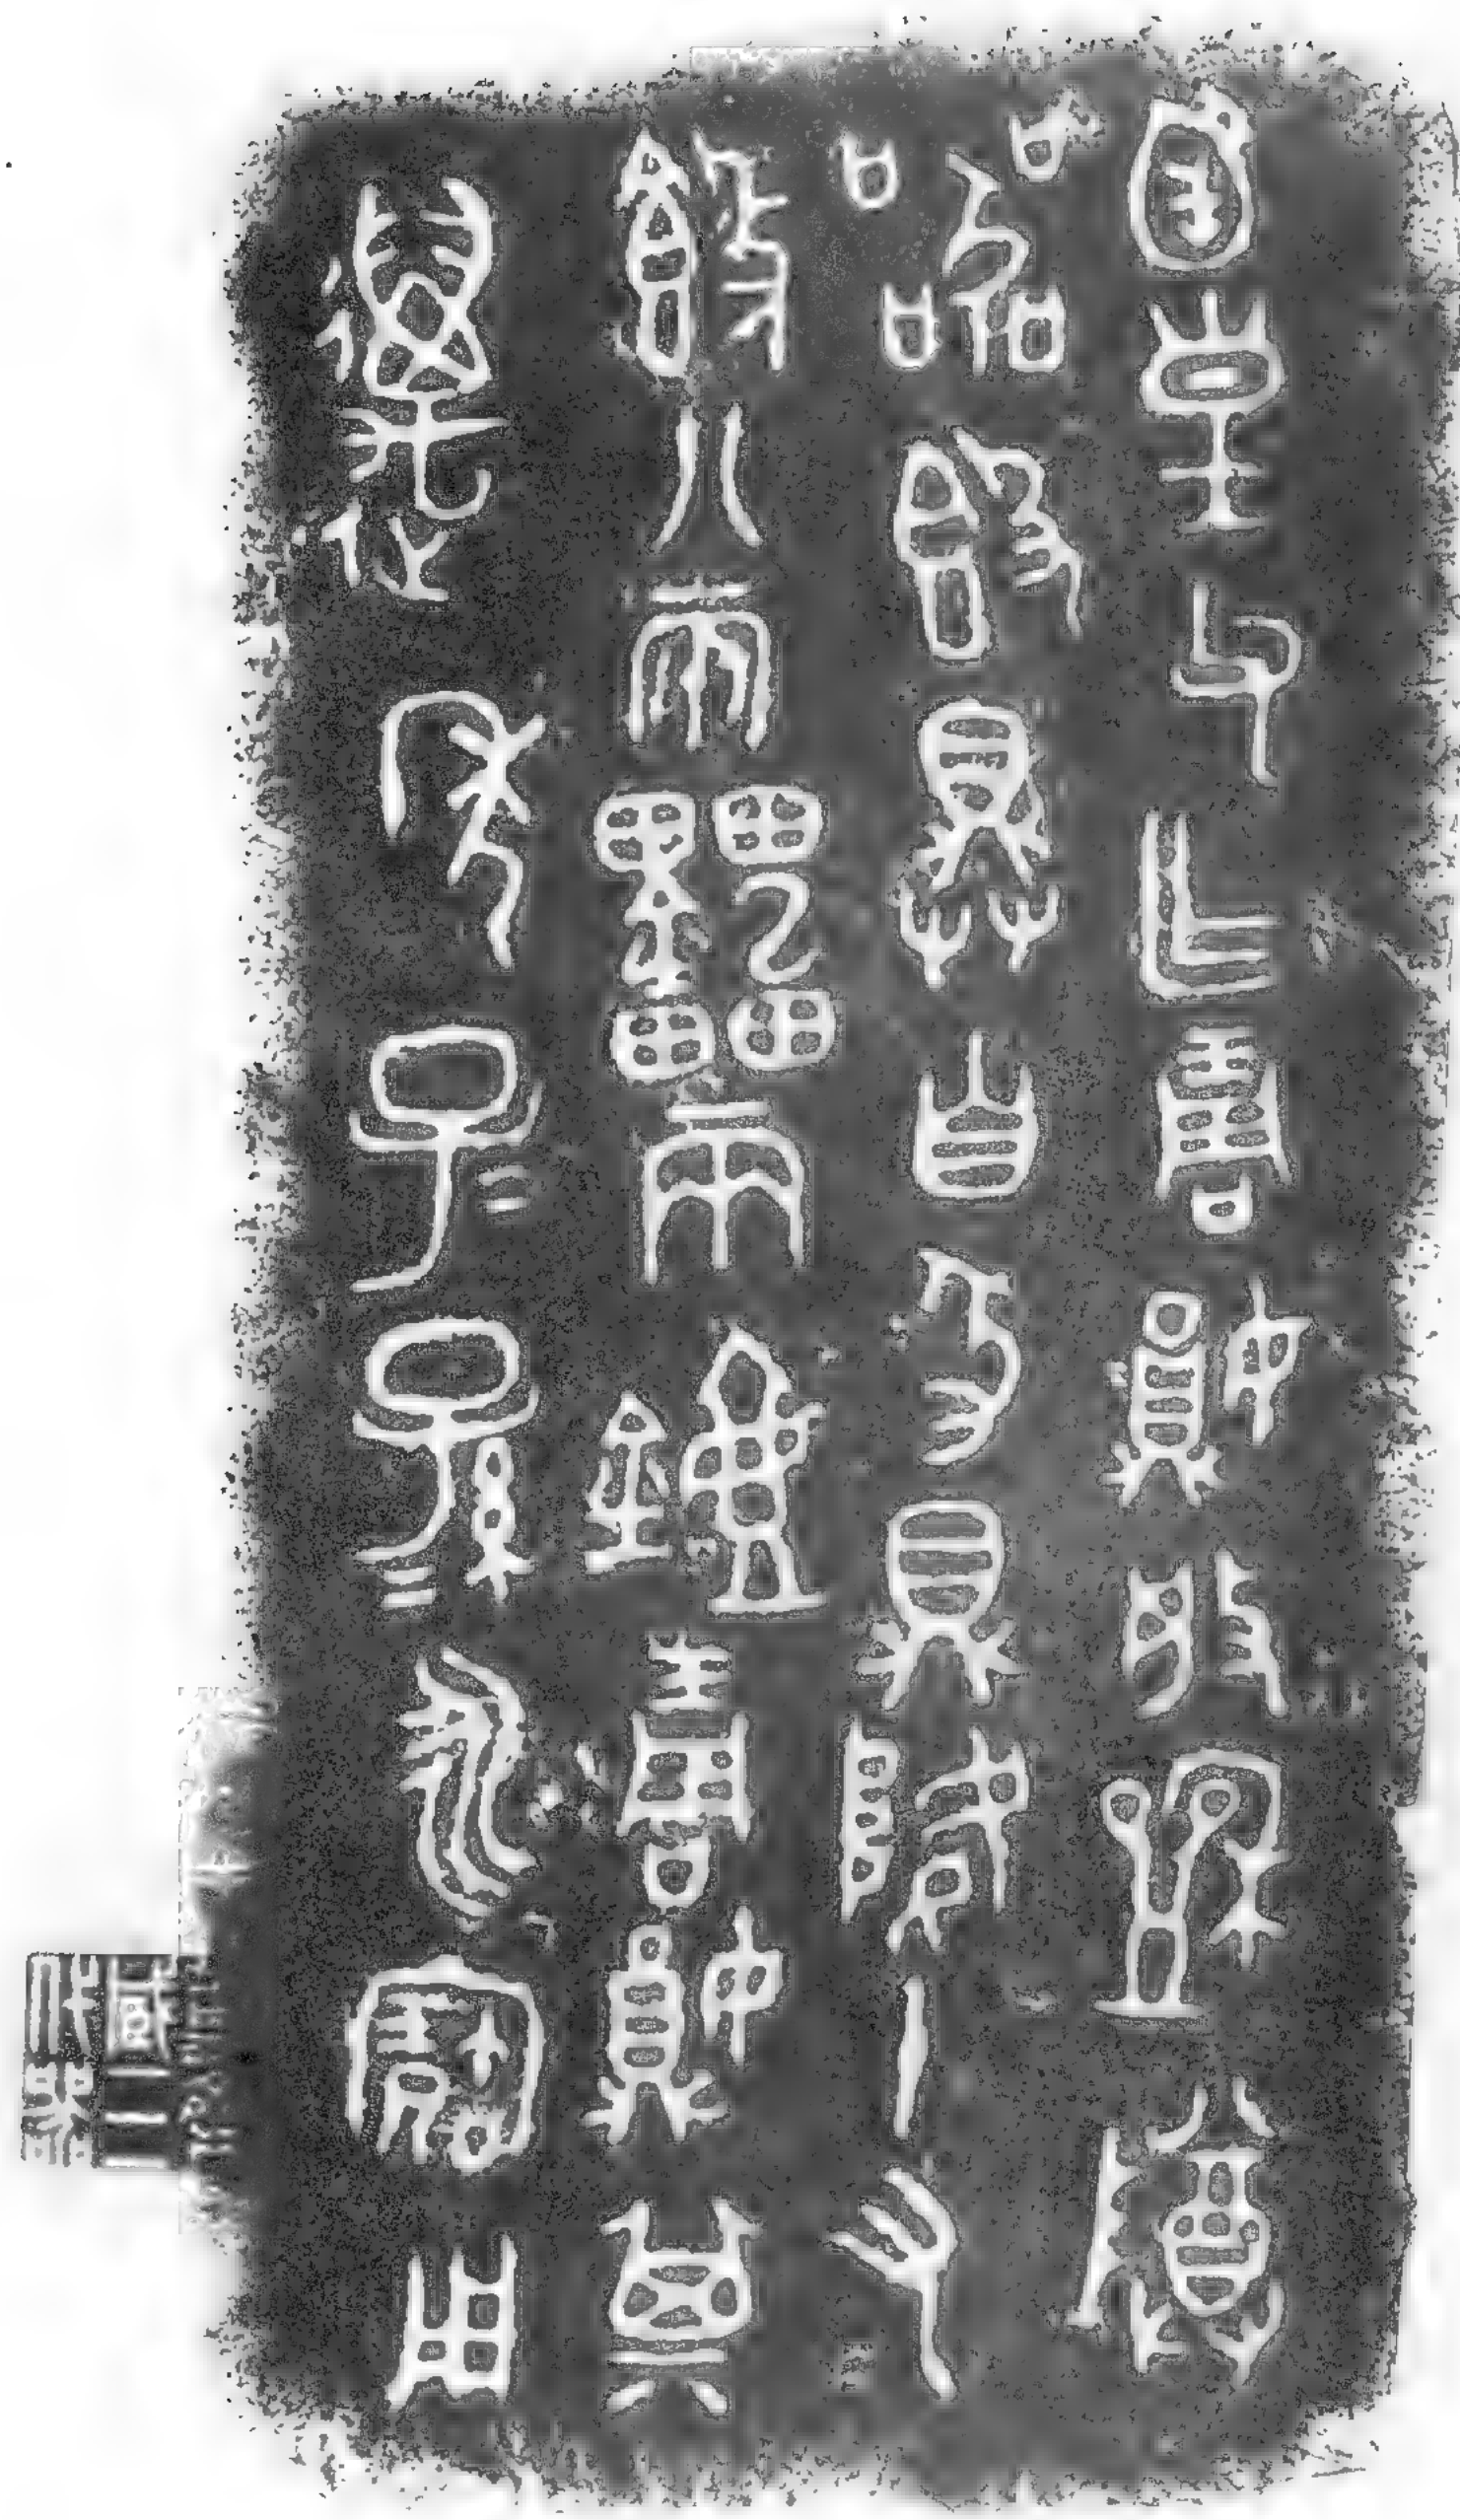 函皇父乍琱娟般盉尊
器簋具自豕鼎降十又
簋八兩罍兩壺琱娟其
萬年子=孫=永寶用